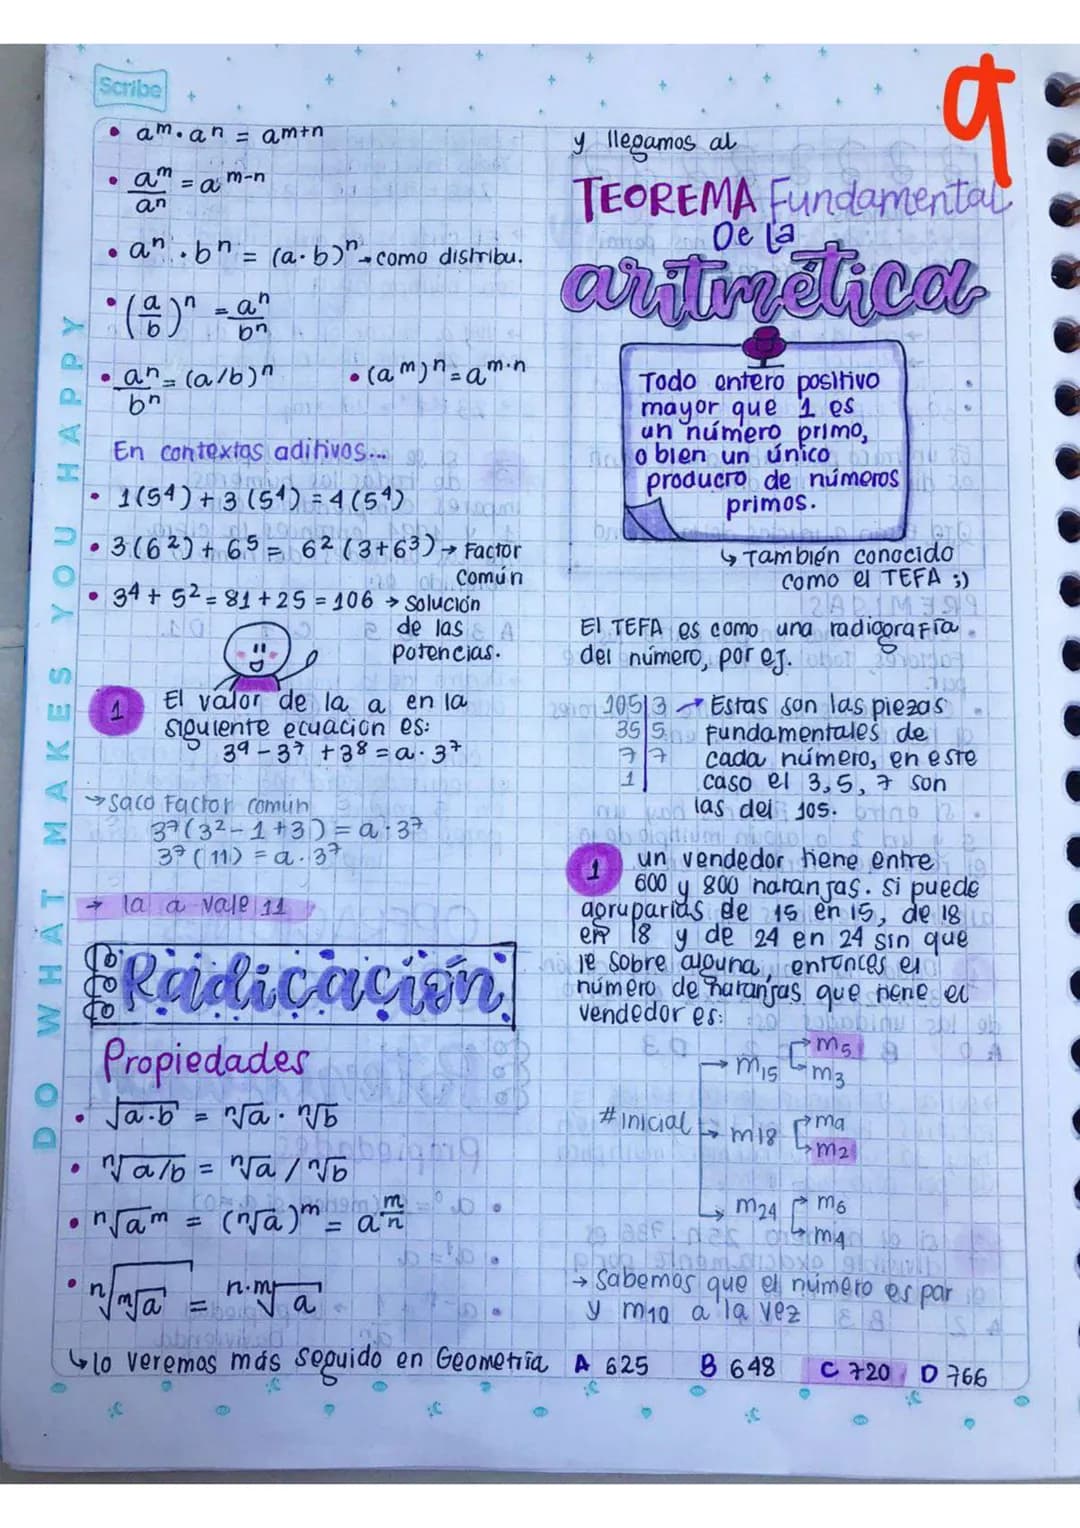 Scribe
9
DO WHAT MAKES YOU HAPPY
• a^m · a^n = a^m+n
• a^m/a^n = a^m-n
• a^n · b^n = (a·b)^n → como distribu.
• (a/b)^n = a^n/b^n
• a^n/b^n = (a/b)^n • (a^m)^n = a^m·n
En contextos aditivos...
• 1(5^4) + 3(5^4) = 4(5^4)
• 3(6^2) + 6^5 = 6^2 (3+6^3) → Factor
común
• 3^4 + 5^2 = 81 + 25 = 106 → Solución
de las
potencias.
1 El valor de la a en la
siguiente ecuación es:
3^9 - 3^7 + 3^8 = a · 3^7
→ Saco Factor común
3^7 (3^2 - 1 + 3) = a · 3^7
3^7 (11) = a · 3^7
→ la a vale 11
Radicación
Propiedades
• √a·b = ^n√a · ^n√b
• ^n√a/b = ^n√a / ^n√b
• ^n√a^m = (^n√a)^m = a^m/n
• ^n√^m√a = ^n·m√a
↳ lo veremos más seguido en Geometría
y llegamos al
TEOREMA Fundamental
De la
aritmética
Todo entero positivo
mayor que 1 es
un número primo,
o bien un único
producto de números
primos.
↳ También conocido
como el TEFA ;)
El TEFA es como una radiografía
del número, por ej.
105 | 3 → Estas son las piezas
35 | 5 fundamentales de
7 | 7 cada número, en este
1 | caso el 3, 5, 7 son
las del 105.
1 un vendedor tiene entre
600 y 800 naranjas. Si puede
agruparlas de 15 en 15, de 18
en 18 y de 24 en 24 sin que
le sobre alguna, entonces el
número de naranjas que tiene el
vendedor es:
→ m15 → m5
→ m3
# inicial → m18 → m9
→ m2
→ m24 → m6
→ m4
→ Sabemos que el número es par
y m10 a la vez
A 625 B 648 C 720 D 766